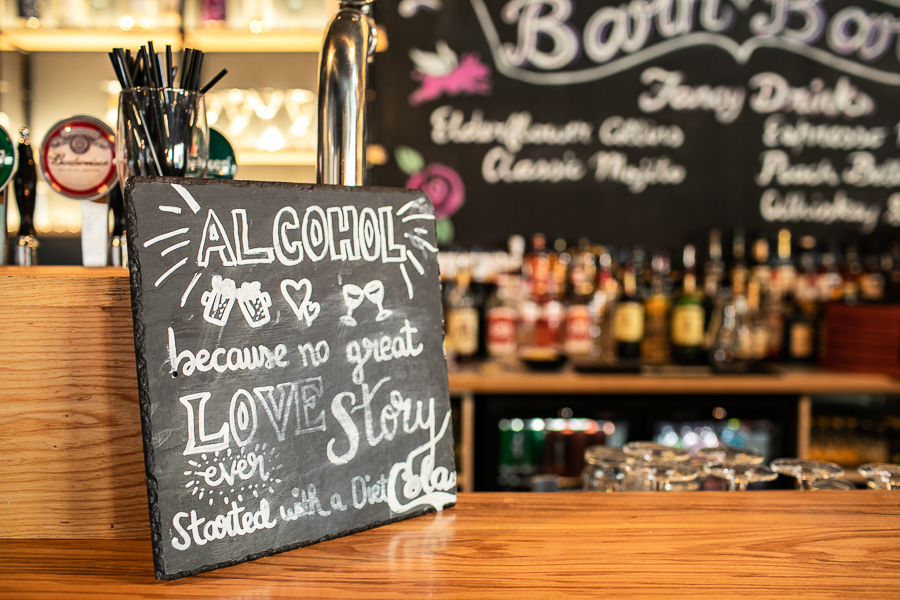 ALCOHOL
because no great
LOVE Story
ever
Started with a Diet Cola
Budweiser
Barn Bar
Fancy Drinks
Elderflower Collins
Classic Mojito
Espresso
Peach
Whiskey